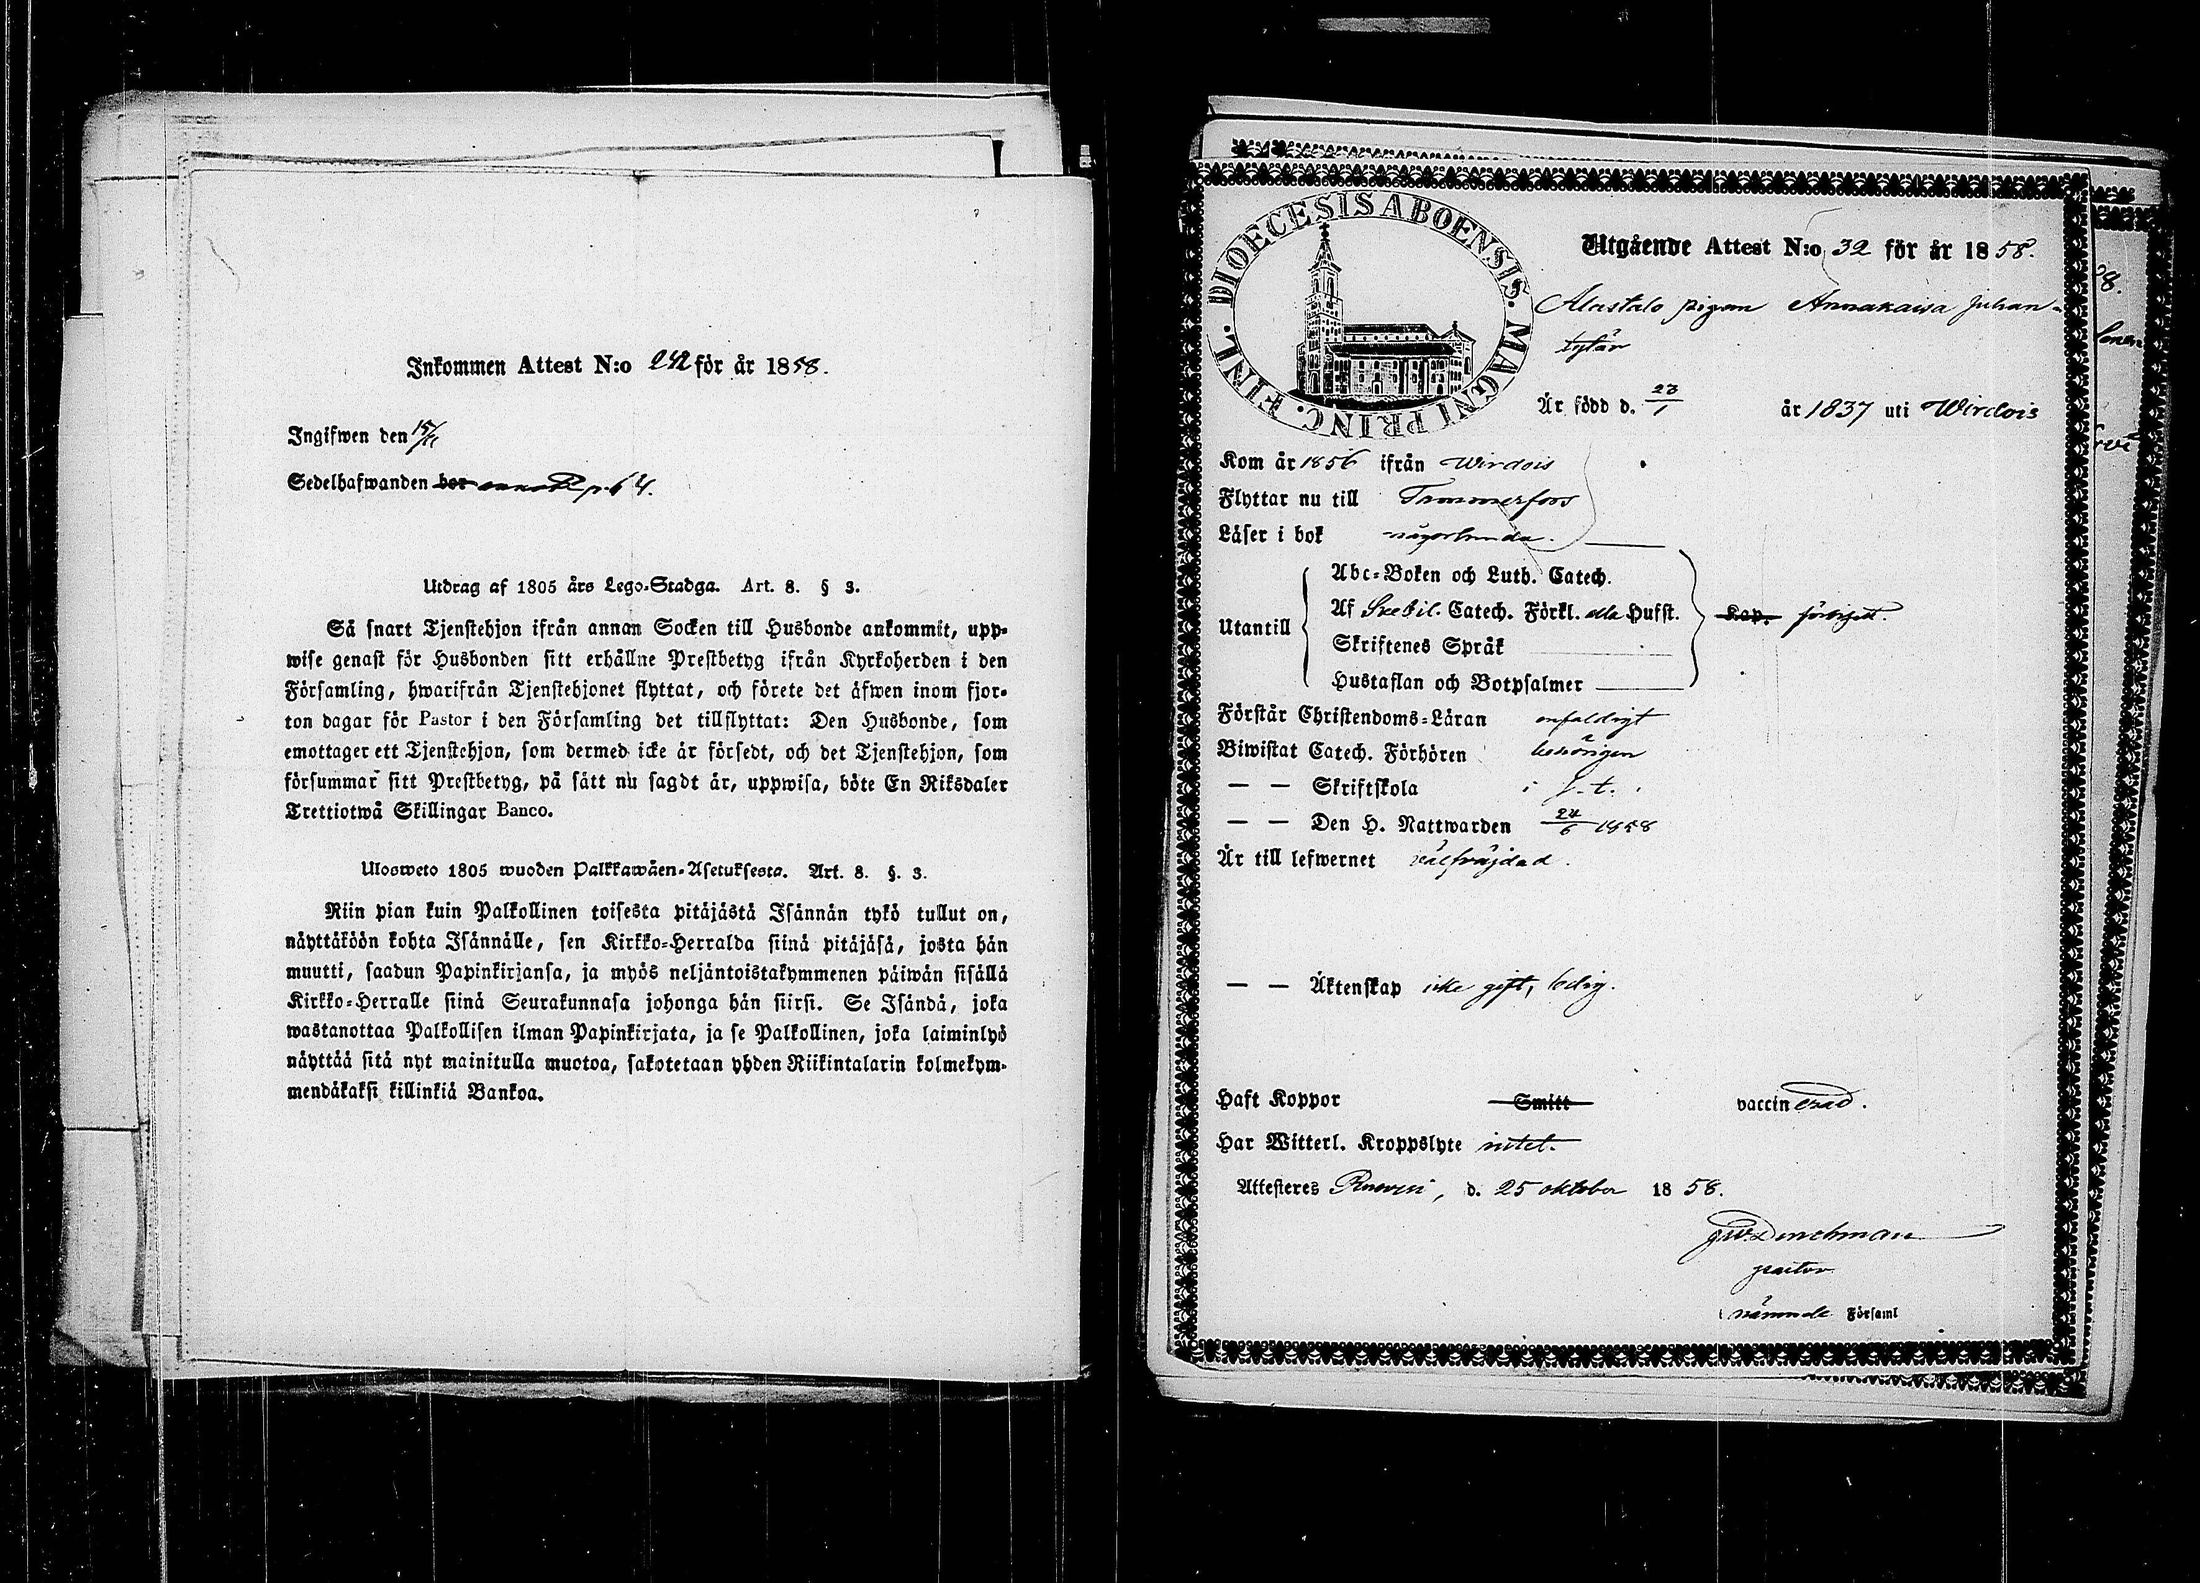 Inkommen Attest N:o 242 för år 1858.
Ingifwen den 15/11
Sedelhafwanden bor p. 64.
Utdrag af 1805 års Lego-Stadga. Art. 8. § 3.
Så snart Tjenstehjon ifrån annan Socken till Husbonde ankommit, upp-
wise genast för Husbonden sitt erhållne Prestbetyg ifrån Kyrkoherden i den
Församling, hwarifrån Tjenstehjonet flyttat, och förete det äfwen inom fjor-
ton dagar för Pastor i den Församling det tillflyttat: Den Husbonde, som
emottager ett Tjenstehjon, som dermed icke är försedt, och det Tjenstehjon, som
försummar sitt Prestbetyg, på sätt nu sagdt är, uppwisa, böte En Riksdaler
Trettiotwå Skillingar Banco.
Ulosweto 1805 wuoden Palkkawäen-Asetuksesta. Art. 8. §. 3.
Niin pian kuin Palkollinen toisesta pitäjästä Isännän tykö tullut on,
näyttäköön kohta Isännälle, sen Kirkko-Herralda siinä pitäjäsä, josta hän
muutti, saadun Papinkirjansa, ja myös neljäntoistakymmenen päiwän sisällä
Kirkko-Herralle siinä Seurakunnasa johonga hän siirsi. Se Isändä, joka
wastanottaa Palkollisen ilman Papinkirjata, ja se Palkollinen, joka laiminlyö
näyttää sitä nyt mainitulla muotoa, sakotetaan yhden Riikintalarin kolmekym-
mendäkaksi killinkiä Bankoa.
DIOECESIS ABOENSIS. MAGNI PRINC. FINL.
Utgående Attest N:o 32 för år 1858.
Alastalo pigan Annakaisa Juhan-
tytär
Är född d. 23/1 år 1837 uti Wirdois
Kom år 1856 ifrån Wirdois
Flyttar nu till Tammerfors
Läser i bok någorlunda.
Utantill
Abc-Boken och Luth. Catech.
Af Svebil. Catech. Förkl. alla Husst. Kap.
Skriftenes Språk
Hustaflan och Botpsalmer
Förstår Christendoms-Läran enfaldigt
Biwistat Catech. Förhören behörigen
— — Skriftskola i s. t.
— — Den H. Nattwarden 24/6 1858
Är till lefwernet välfräjdad.
— — Äktenskap icke gift, ledig.
Haft Koppor Smitt vaccinerad.
Har Witterl. Kroppslyte intet.
Attesteres Ruovesi, d. 25 oktober 1858.
pastor
i nämnde Församl